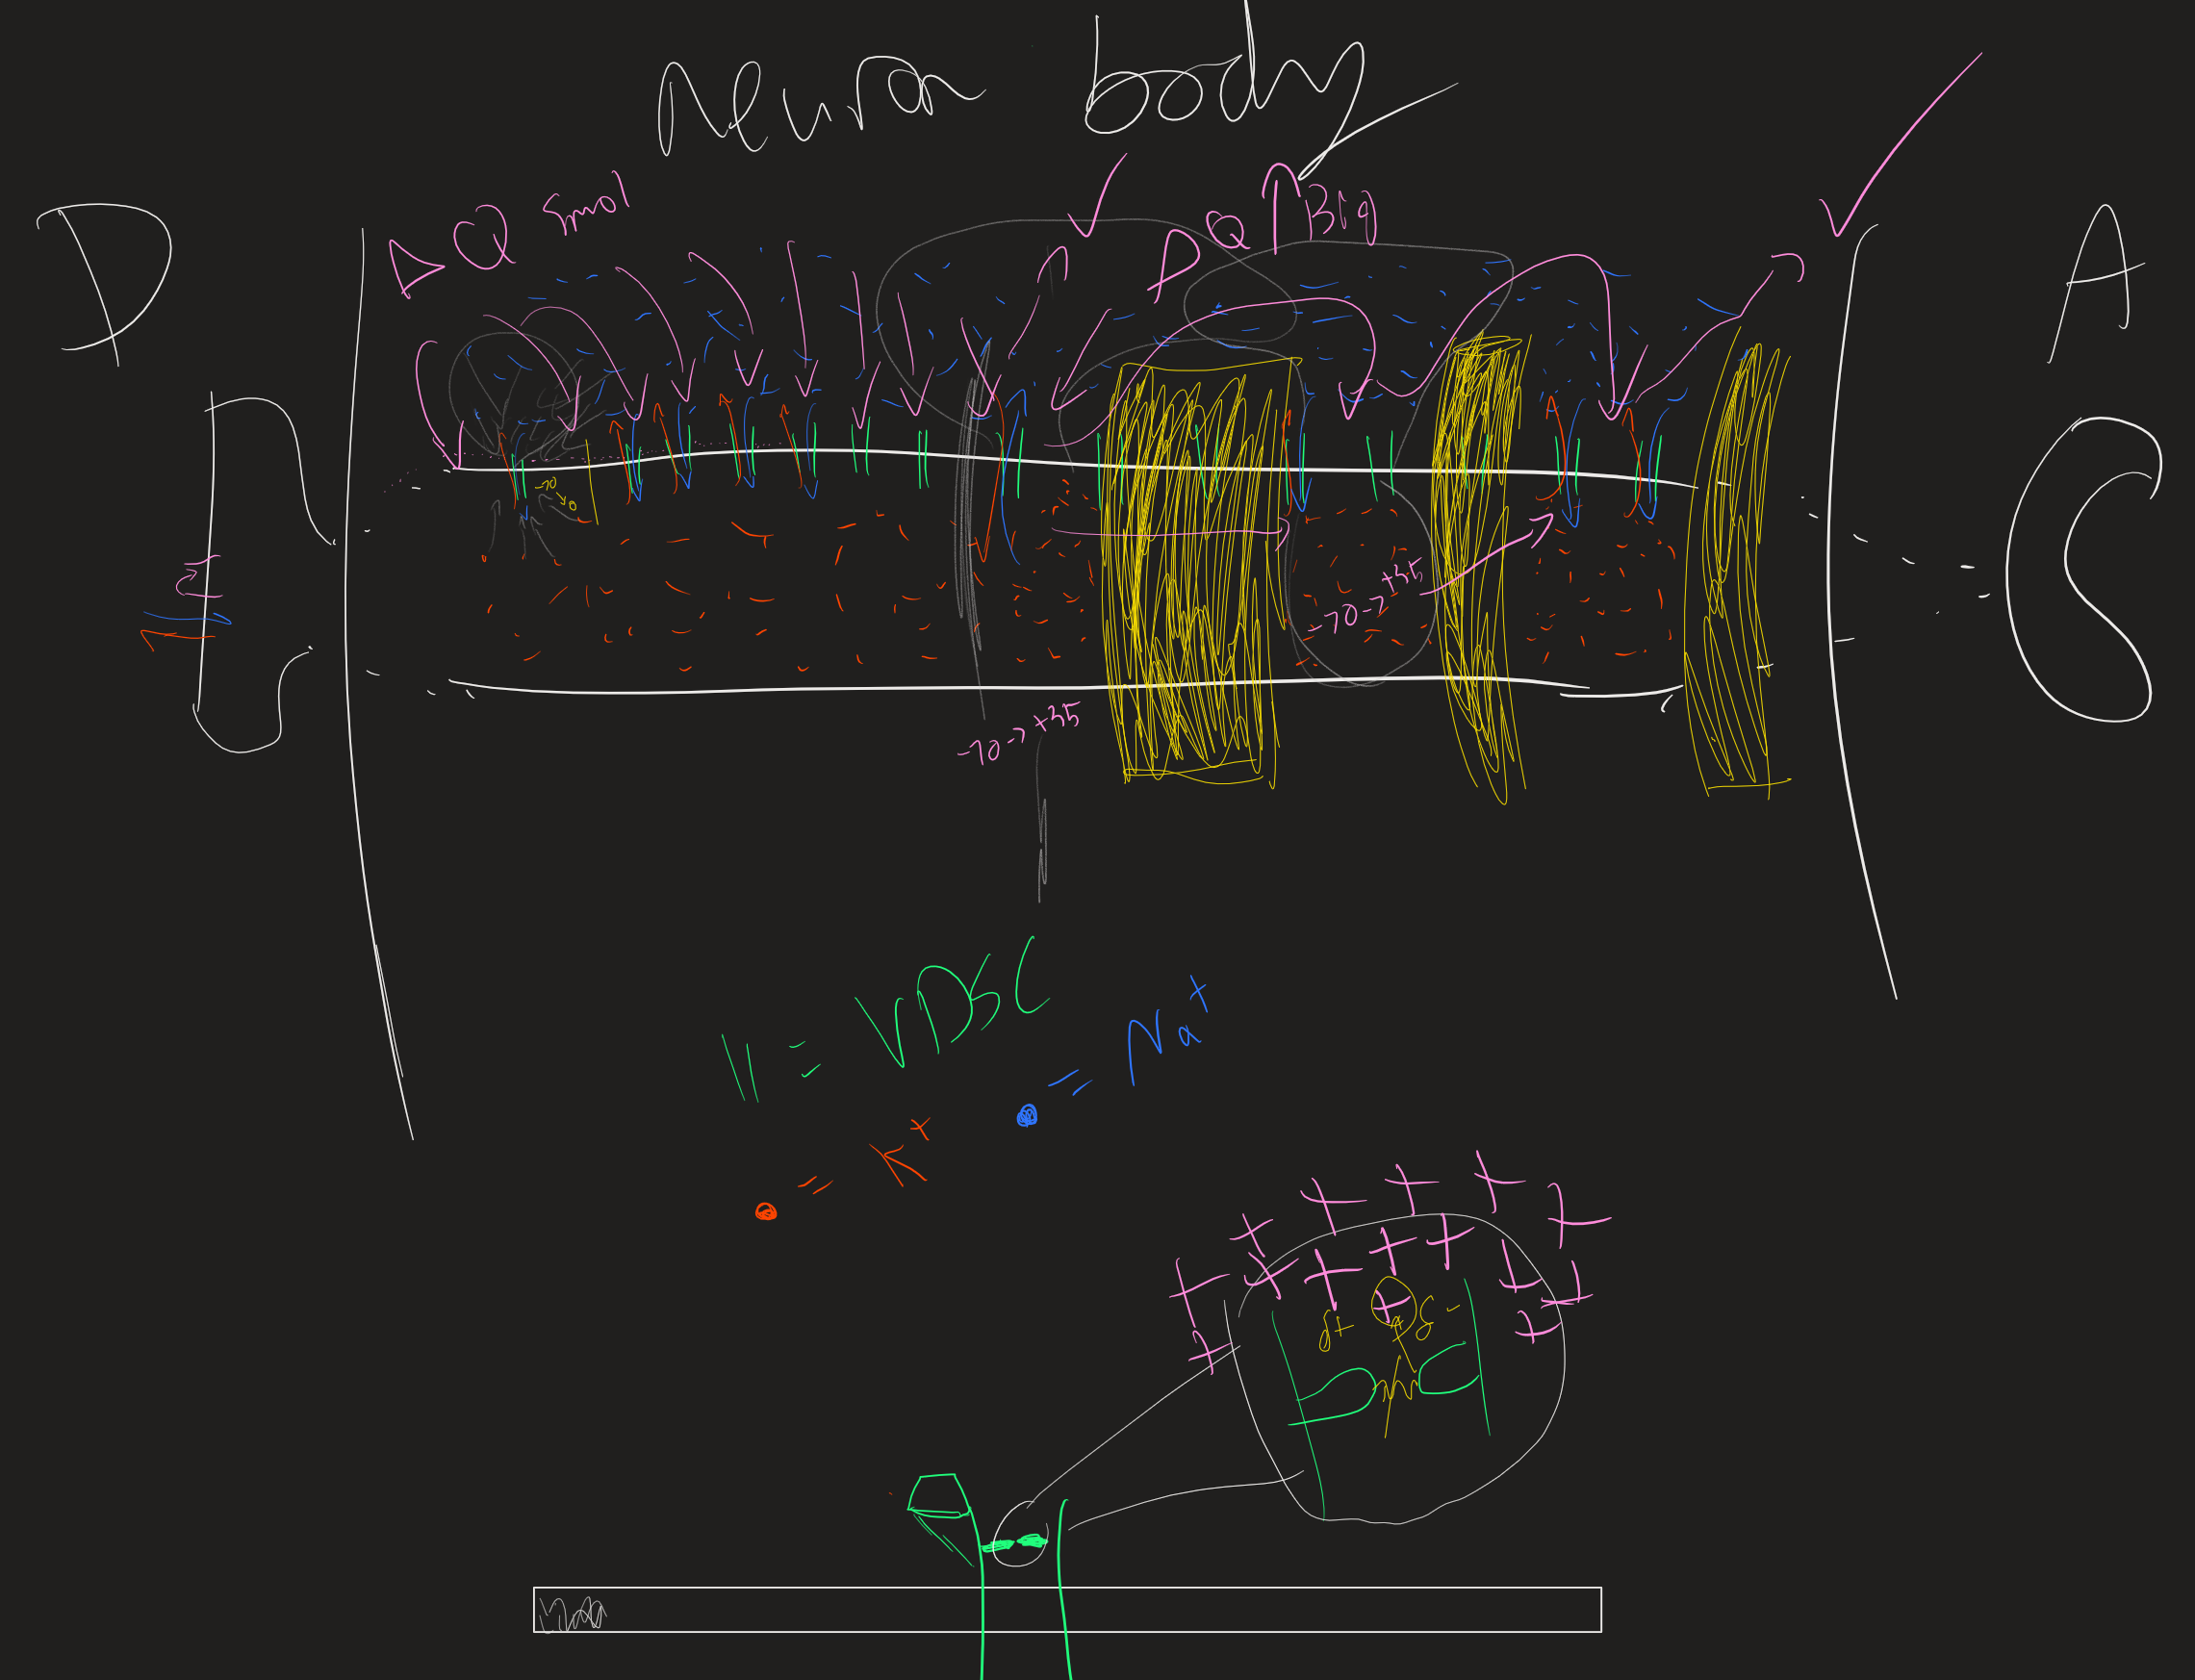 Neuron body
D
A
Q smol
P Q Big
-70 → 0
-70 → +35
-70 → +35
|| = VDSC
= Na+
= K+
+ + + + +
+ + + + + + +
+ + +
δ+ δ-